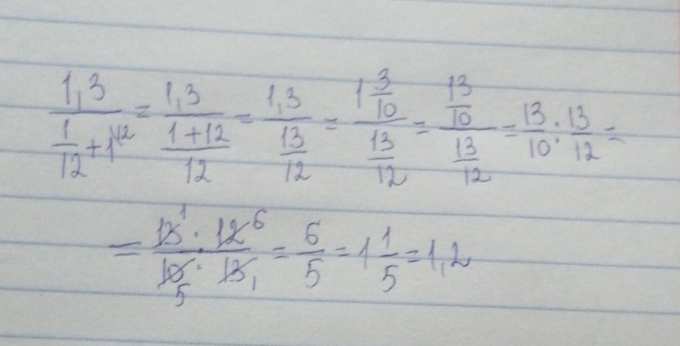 1,3 / (1/12 + 1^12) = 1,3 / ((1+12)/12) = 1,3 / (13/12) = 1 3/10 / (13/12) = (13/10) / (13/12) = 13/10 : 13/12 =
= (13^1 · 12^6) / (10_5 · 13_1) = 6/5 = 1 1/5 = 1,2